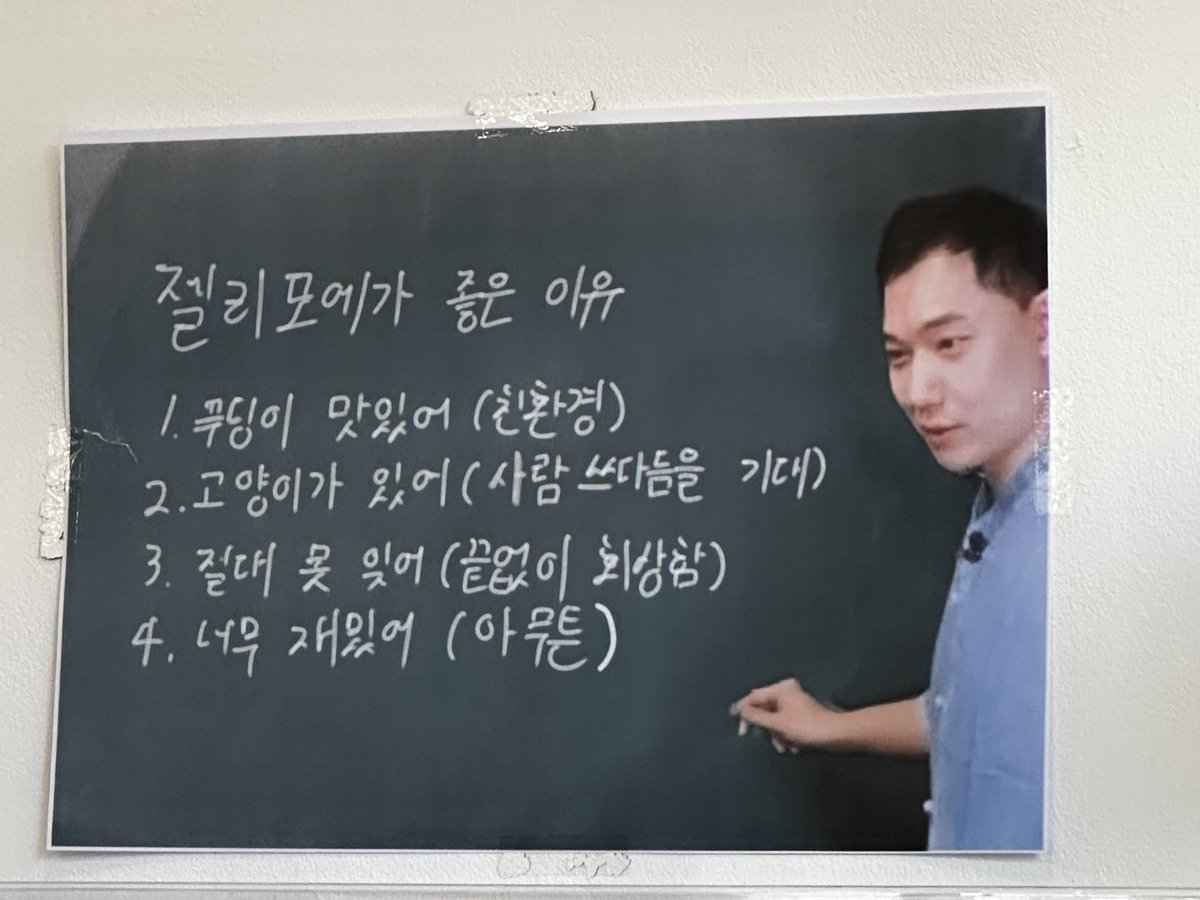 젤리포에가 좋은 이유
1. 푸딩이 맛있어 (친환경)
2. 고양이가 있어 (사람 쓰다듬을 기대)
3. 절대 못 잊어 (끝없이 회상함)
4. 너무 재밌어 (아무튼)